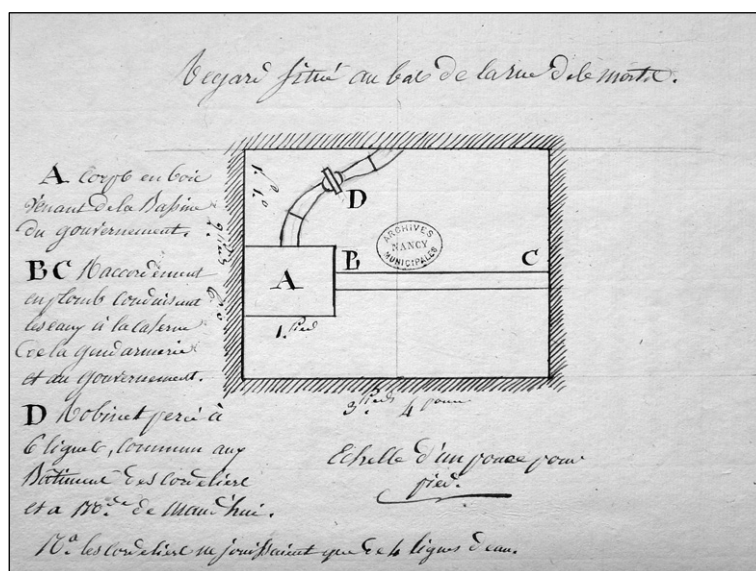 Regard situé au bas de la rue de la
A Corps en bois
venant de la Bassine
du gouvernement.
BC Raccordement
en plomb conduisant
les eaux à la caserne
de la gendarmerie
et au gouvernement.
D Robinet percé à
6 lignes, commun aux
Bâtiment des cordeliers
et a Mde. de
Na. les cordeliers ne jouissaient que de 4 lignes d'eau.
D
ARCHIVES
NANCY
MUNICIPALES
B
C
A
1. pied
3. pieds 4 pouces
Echelle d'un pouce pour
pied.